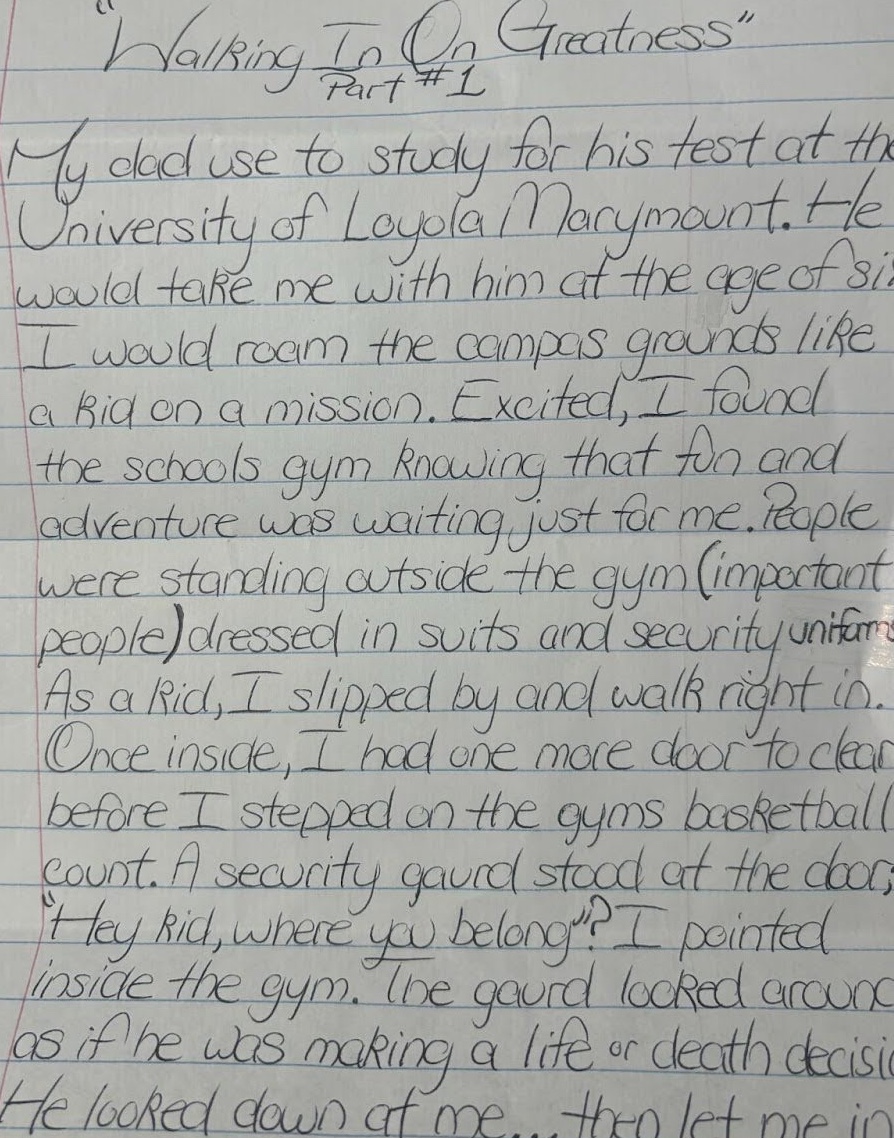 "Walking In On Greatness"
Part #1
My dad use to study for his test at the
University of Loyola Marymount. He
would take me with him at the age of si
I would roam the campas grounds like
a kid on a mission. Excited, I found
the schools gym knowing that fun and
adventure was waiting just for me. People
were standing outside the gym (important
people) dressed in suits and security uniforms
As a kid, I slipped by and walk right in.
Once inside, I had one more door to clear
before I stepped on the gyms basketball
count. A security gaurd stood at the door;
"Hey kid, where you belong"? I pointed
inside the gym. The gaurd looked around
as if he was making a life or death decisio
He looked down at me... then let me in